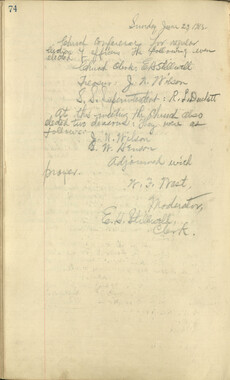 74
Sunday Jan 29, 1912
Church Conference for regular
election of officers. The following were
elected
Church Clerk: E.S. Stillwell
J. N. Wilson
S.S. Superintendent: R.L.
At this meeting the Church also
elected two deacons. They were as
follows:
J. N. Wilson
E. W. Henson
Adjourned with
prayer.
W. F. West,
Moderator,
E.S. Stillwell,
Clerk.